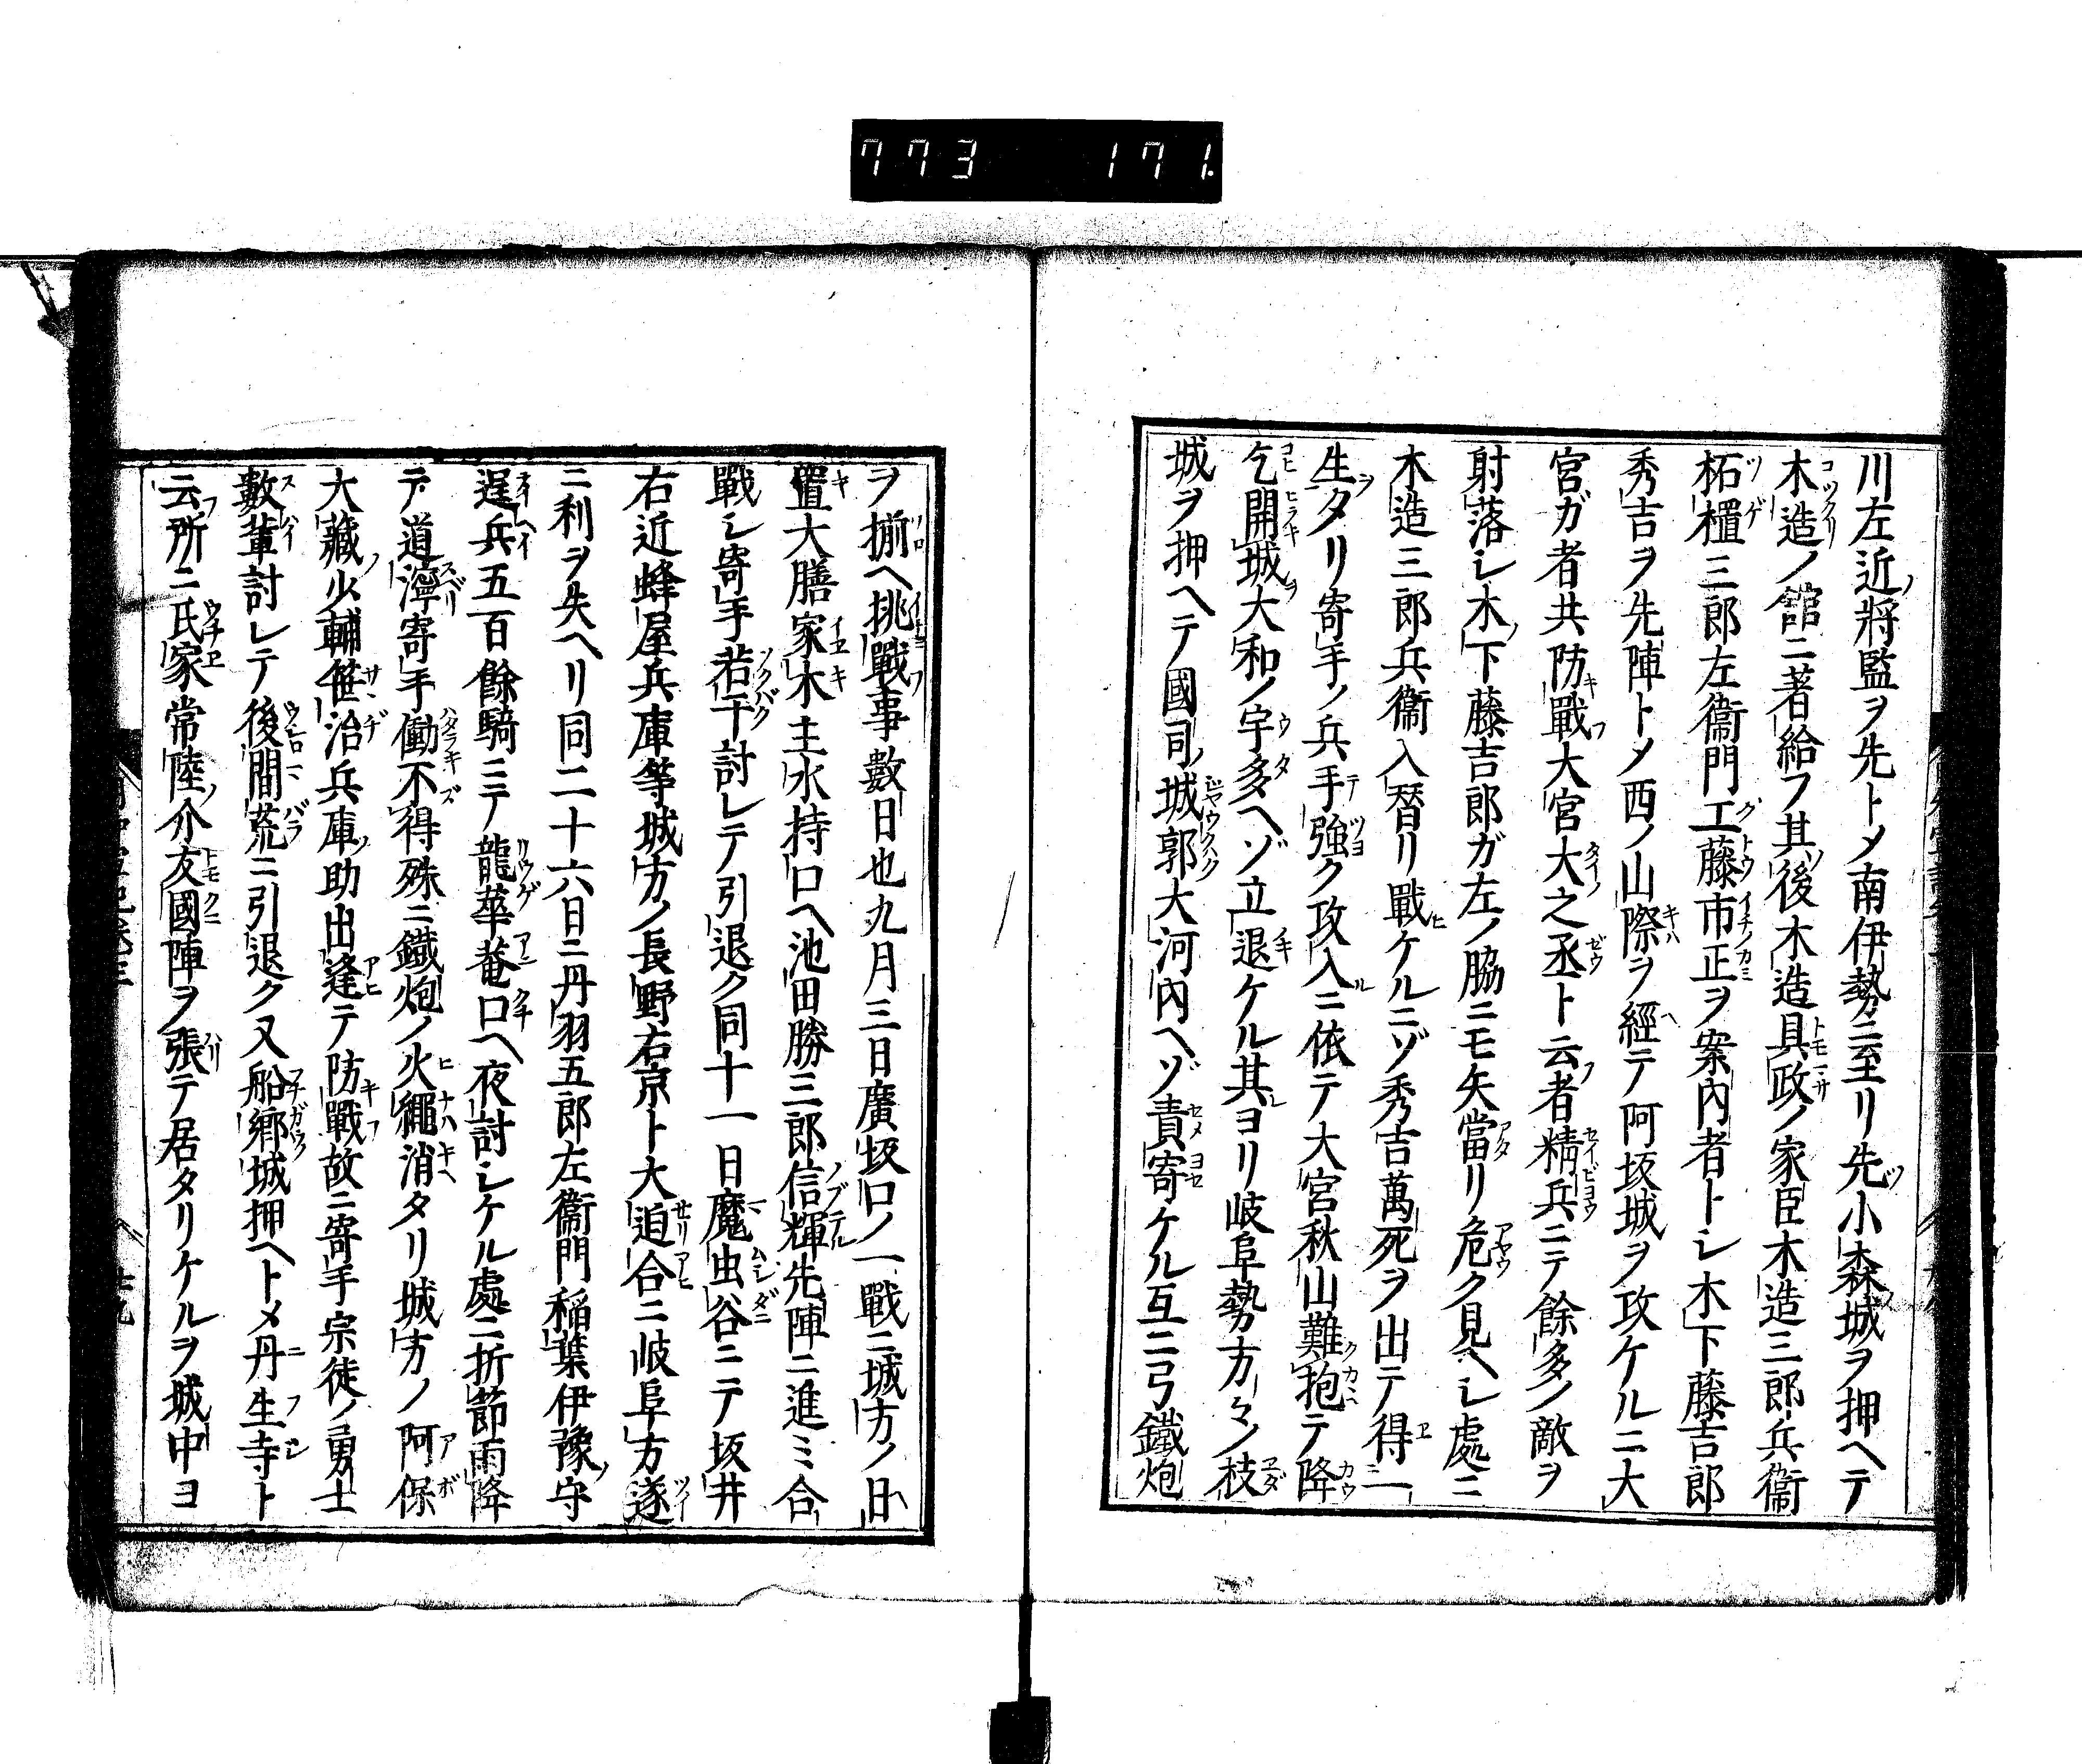 773 171.
川左近將監ヲ先トメ南伊勢ニ至リ先小森城ヲ押ヘテ
木造ノ館ニ著給フ其後木造具政ノ家臣木造三郎兵衞
柘櫃三郎左衞門工藤市正ヲ案内者トシ木下藤吉郎
秀吉ヲ先陣トメ西ノ山際ヲ經テ阿坂城ヲ攻ケルニ大
宮ガ者共防戰大宮大之丞ト云者精兵ニテ餘多ノ敵ヲ
射落シ木下藤吉郎ガ左ノ脇ニモ矢當リ危ク見ヘシ處ニ
木造三郎兵衞入替リ戰ケルニゾ秀吉萬死ヲ出テ得一
生タリ寄手ノ兵手強ク攻入ニ依テ大宮秋山難抱テ降
乞開城大和ノ宇多ヘゾ立退ケル其ヨリ岐阜勢方々ノ枝
城ヲ押ヘテ國司ノ城郭大河内ヘゾ責寄ケル互ニ弓鐵炮
ヲ揃ヘ挑戰事數日也九月三日廣坂口ノ一戰ニ城方ノ日
置大膳家木主水持口ヘ池田勝三郎信輝先陣ニ進ミ合
戰シ寄手若干討レテ引退ク同十一日魔虫谷ニテ坂井
右近蜂屋兵庫等城方ノ長野右京ト大迫合ニ岐阜方遂
ニ利ヲ失ヘリ同二十六日ニ丹羽五郎左衞門稲葉伊豫守
逞兵五百餘騎ニテ龍華菴口ヘ夜討シケル處ニ折節雨降
テ道濘寄手働不得殊ニ鐵炮ノ火繩消タリ城方ノ阿保
大藏少輔笹治兵庫助出逢テ防戰故ニ寄手宗徒ノ勇士
數輩討レテ後間荒ニ引退ク又船郷城押ヘトメ丹生寺ト
云所ニ氏家常陸介友國陣ヲ張テ居タリケルヲ城中ヨ